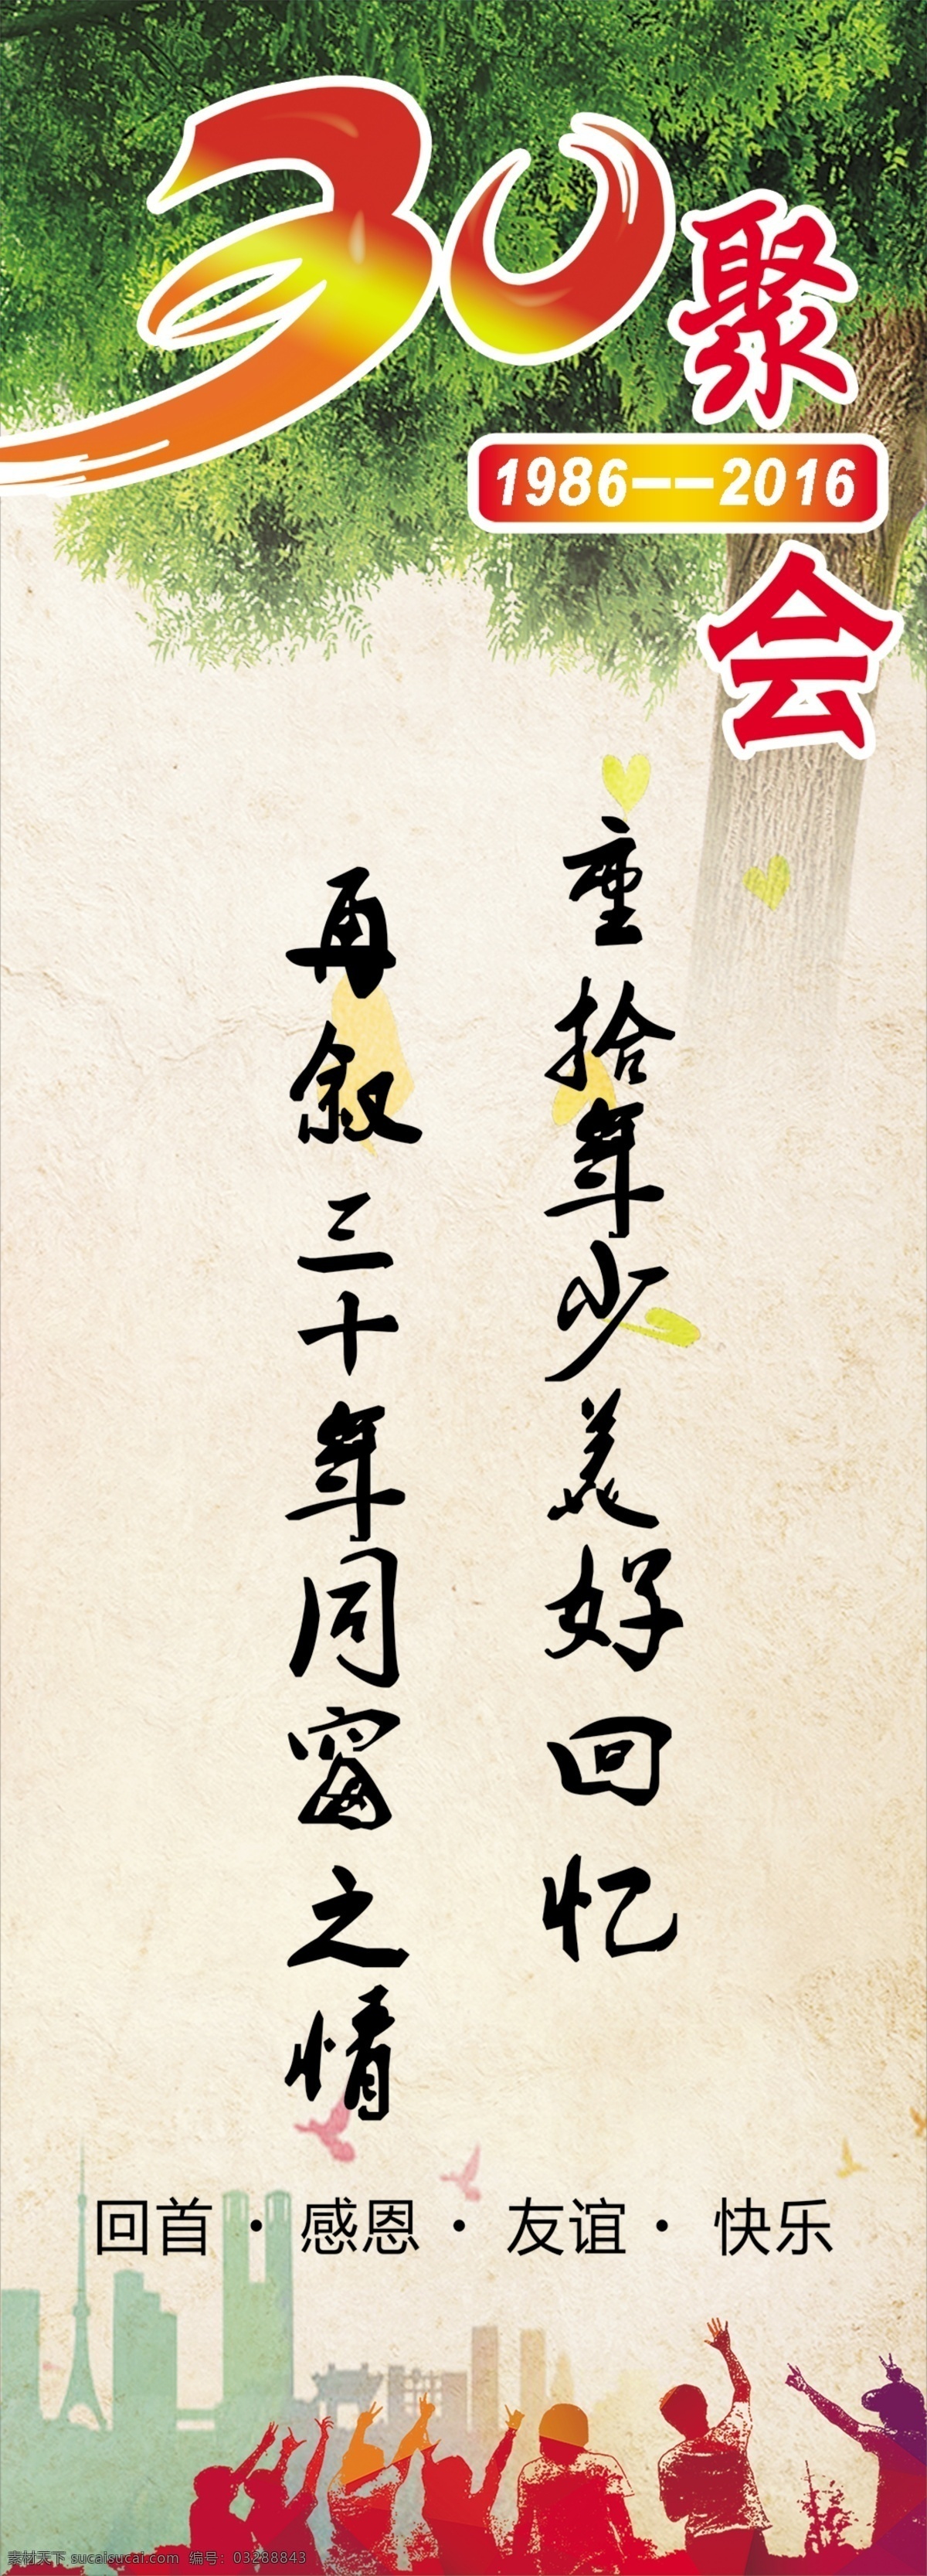 30
聚
1986——2016
会
重拾年少美好回忆
再叙三十年同窗之情
回首·感恩·友谊·快乐
素材天下 sucaisucai.com 编号：03288843